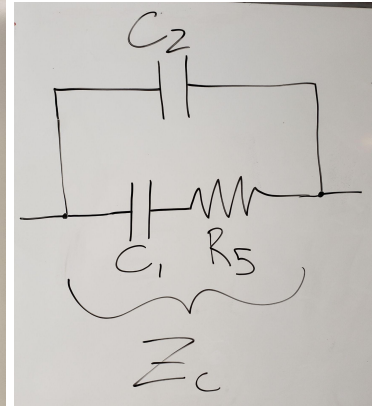 C2
C1 R5
Zc